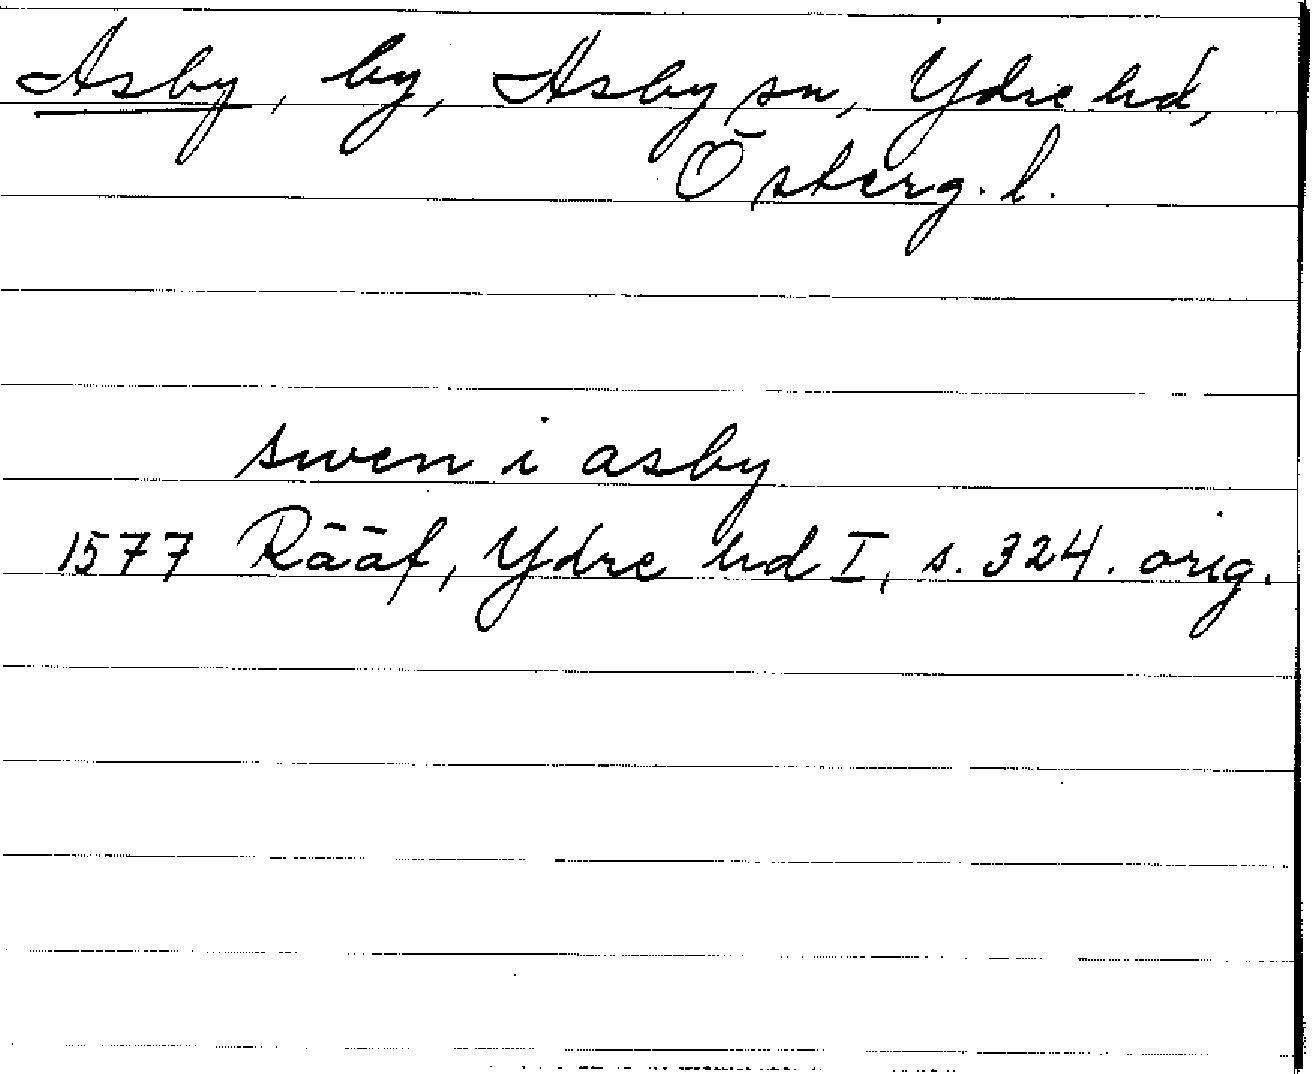 Asby, by, Asby sn, Ydre hd,
Österg. l.
swen i asby
1577 Rääf, Ydre hd I, s. 324. orig.